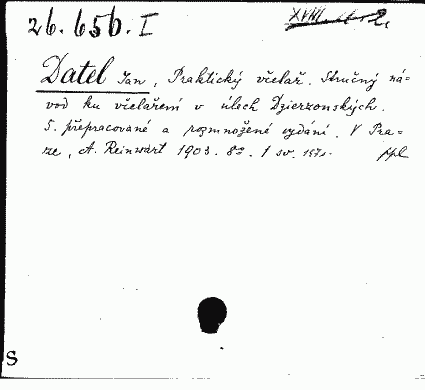 26.656.I
Datel Jan, Praktický včelař. Stručný ná-
vod ku včelaření v úlech Dzierzonských.
5. přepracované a rozmnožené vydání. V Pra-
ze, A. Reinwart 1903. 8°. 1 sv. 157s. ppl
S